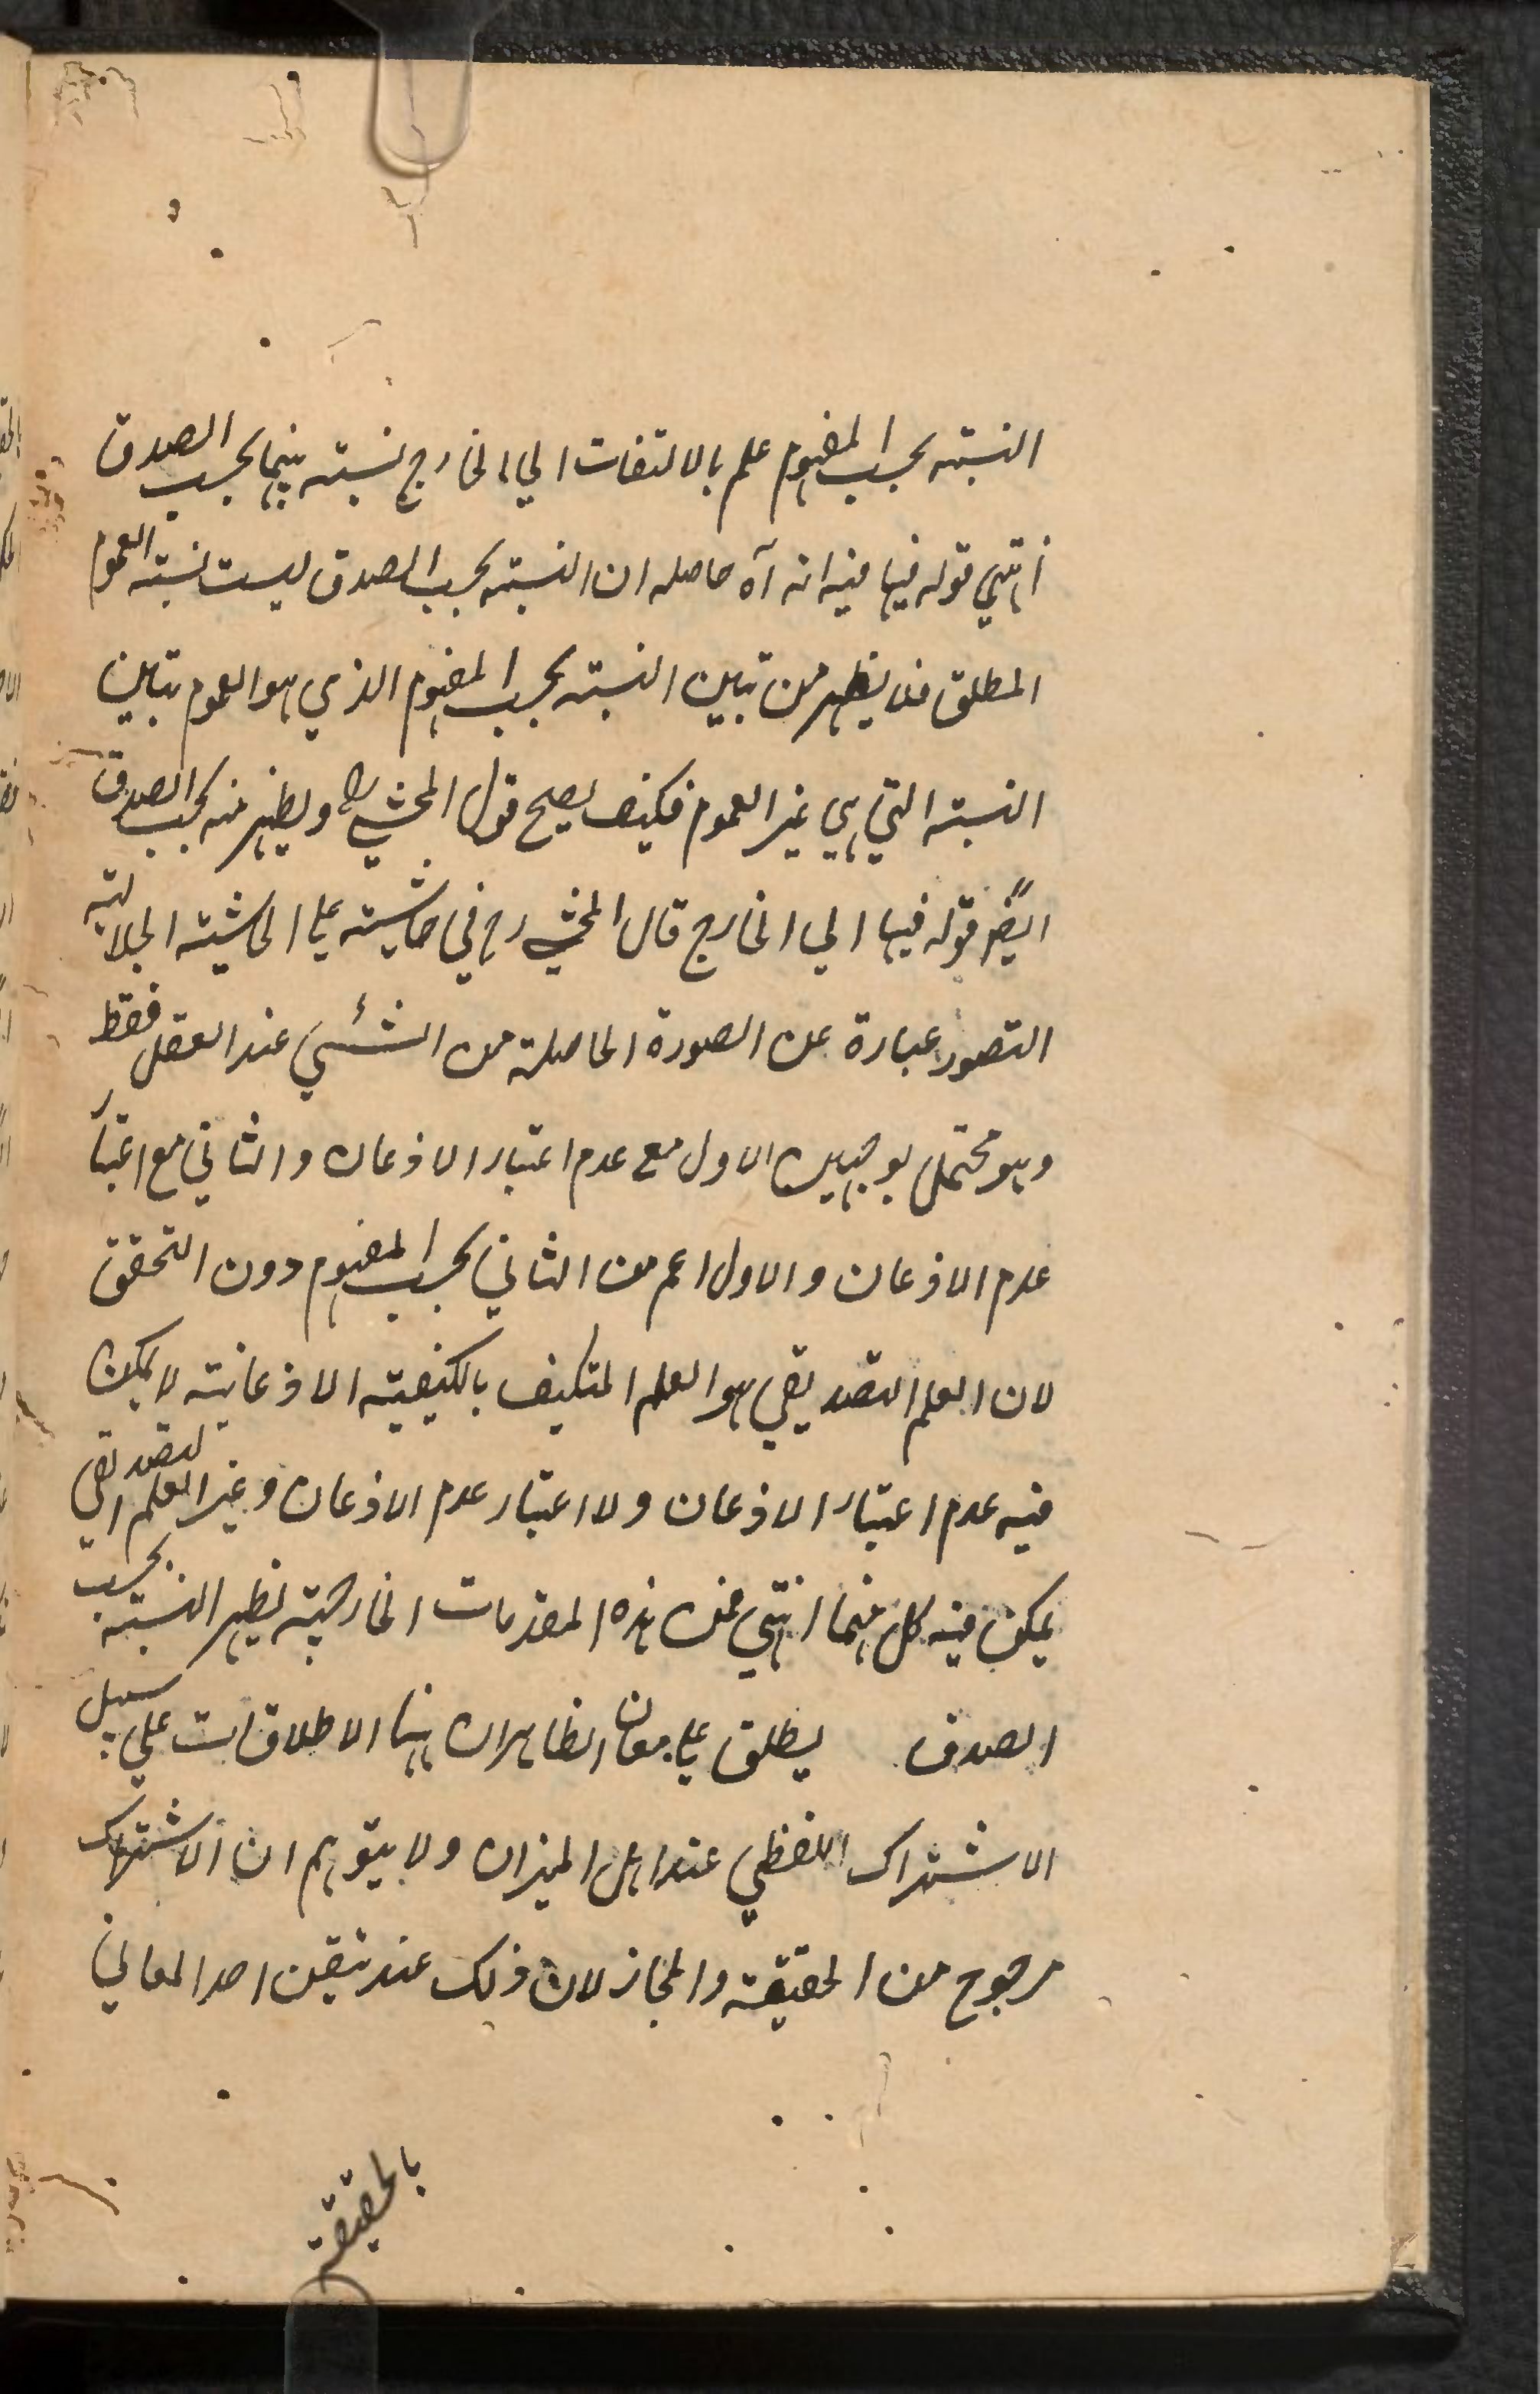 النسبة بحسب المفهوم علم بالالتفات الي الخارج نسبته بينهما بحسب الصدق
انتهي قوله فيها فيه انه آه حاصله ان النسبة بحسب الصدق ليست نسبة العموم
المطلق فلا يظهر من تباين النسبة بحسب المفهوم الذي هو العموم تباين
النسبة التي هي غير العموم فكيف يصح قول المحشي رح ويظهر منه بحسب الصدق
ايضًا قوله فيها الي الخارج قال المحشي رح في حاشيته علي الحاشية الجلالية
التصور عبارة عن الصورة الحاصلة من الشئي عند العقل فقط
وهو محتمل بوجهين الاول مع عدم اعتبار الاذعان والثاني مع اعتبار
عدم الاذعان والاول اعم من الثاني بحسب المفهوم دون التحقق
لان العلم التصديقي هو العلم المتكيف بالكيفية الاذعانية لا يمكن
فيه عدم اعتبار الاذعان ولا اعتبار عدم الاذعان وغير العلم التصديقي
يمكن فيه كل منهما انتهي فمن هذه المقدمات الخارجية يظهر النسبة بحسب
الصدق يطلق علي معان الظاهر ان هنا الاطلاقات علي سبيل
الاشتراك اللفظي عند اهل الميزان ولا يتوهم ان الاشتراك
مرجوح من الحقيقة والمجاز لان ذلك عند تيقن احد المعاني
بالحقيقة